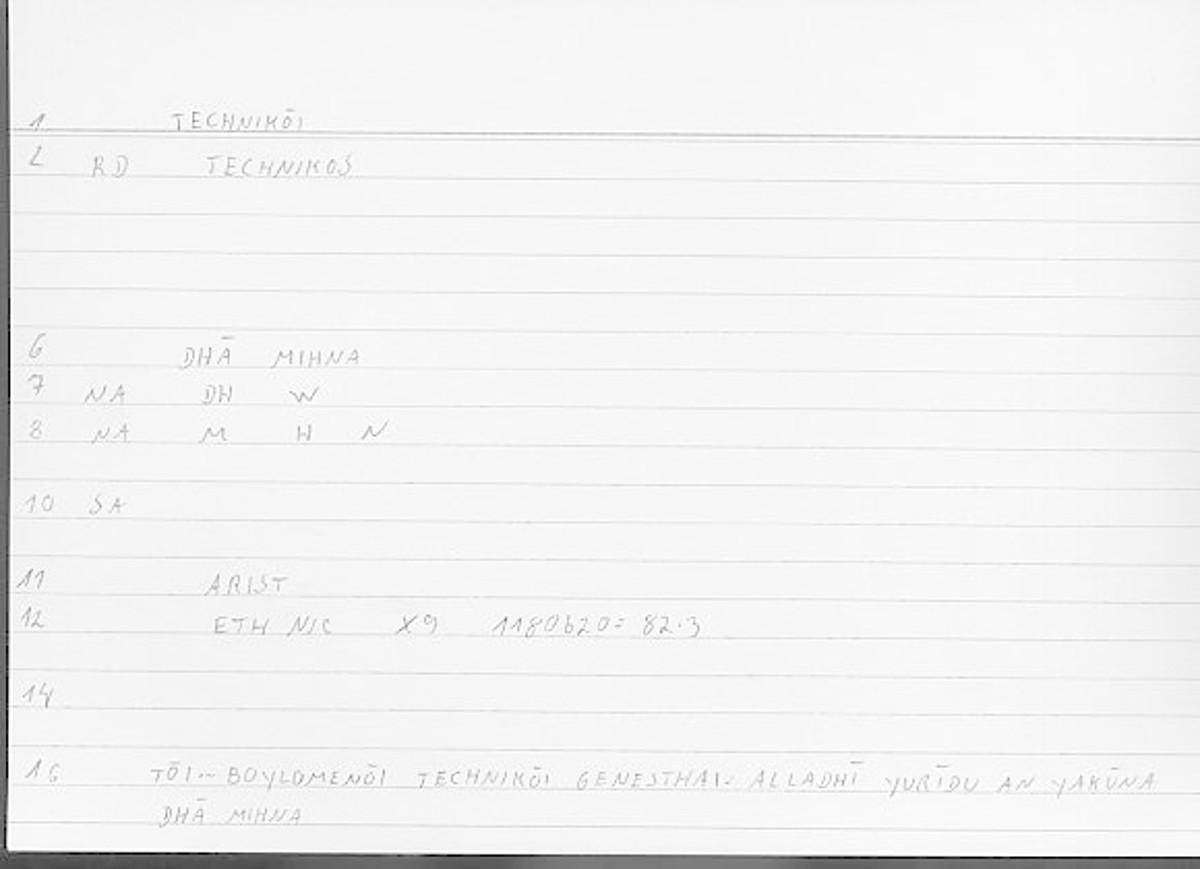 1 TECHNIKŌI
2 RD TECHNIKOS
6 DHĀ MIHNA
7 NA DH W
8 NA M H N
10 SA
11 ARIST
12 ETH NIC X9 1180b20= 82.3
14
16 TŌI-- BOYLOMENŌI TECHNIKŌI GENESTHAI- ALLADHĪ YURĪDU AN YAKŪNA
DHĀ MIHNA